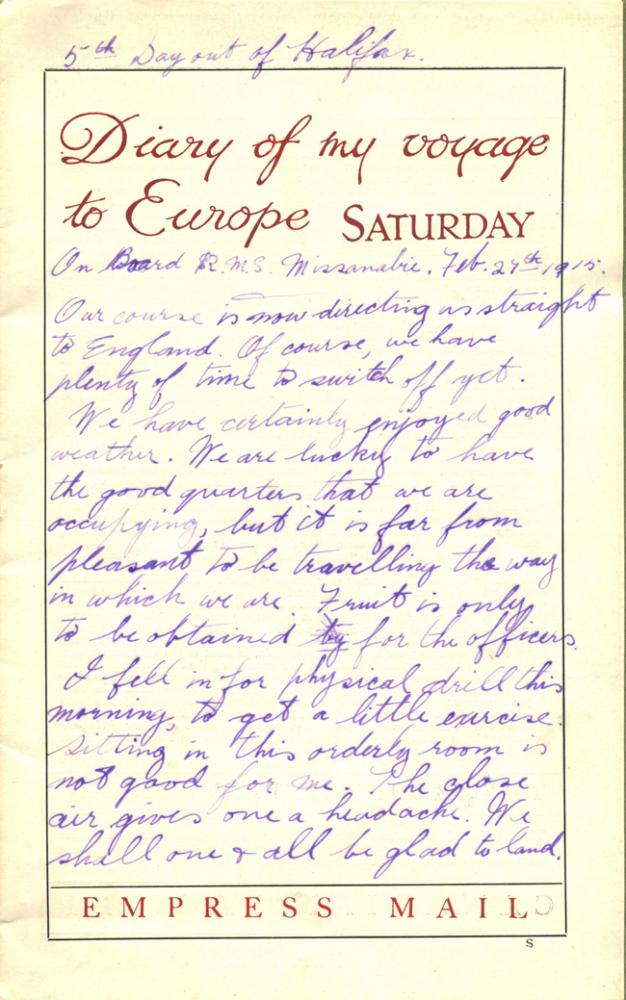 5th Day out of Halifax.
Diary of my voyage
to Europe SATURDAY
On Board R.M.S. Missanabie. Feb. 27th 1915.
Our course is now directing us straight
to England. Of course, we have
plenty of time to switch off yet.
We have certainly enjoyed good
weather. We are lucky to have
the good quarters that we are
occupying, but it is far from
pleasant to be travelling the way
in which we are. Fruit is only
to be obtained by for the officers.
I fell in for physical drill this
morning, to get a little exercise.
Sitting in this orderly room is
not good for me. The close
air gives one a headache. We
shall one & all be glad to land.
EMPRESS MAIL
S